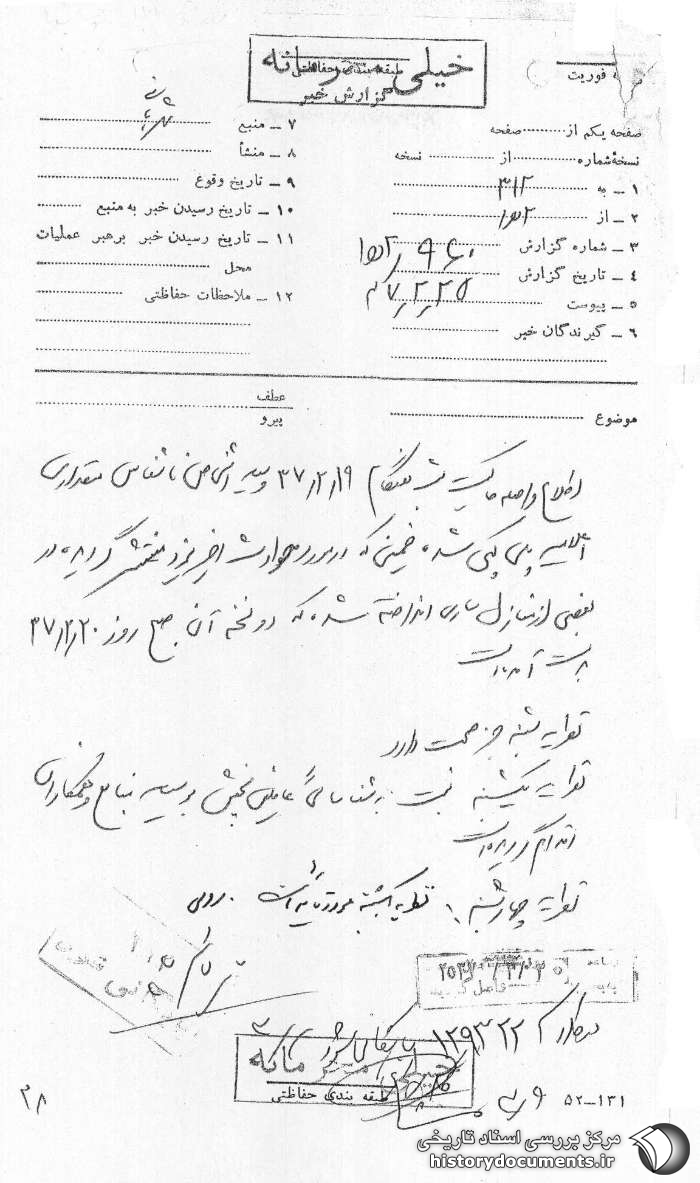 خیلی محرمانه
طبقه بندی حفاظتی
گزارش خبر
فوریت
صفحه یکم از ........ صفحه
نسخهٔ شماره ........ از ........ نسخه
۱ ــ به ۳۱۲
۲ ــ از
۳ ــ شماره گزارش
۴ ــ تاریخ گزارش ۳۷٫۲٫۲۵
۵ ــ پیوست
۶ ــ گیرندگان خبر
۷ ــ منبع
۸ ــ منشأ
۹ ــ تاریخ وقوع
۱۰ ــ تاریخ رسیدن خبر به منبع
۱۱ ــ تاریخ رسیدن خبر برهبر عملیات
محل
۱۲ ــ ملاحظات حفاظتی
موضوع
عطف
پیرو
اطلاع واصله حاکیست شب هنگام ۳۷٫۲٫۱۹ وسیله اشخاص ناشناس مقداری
اعلامیه پلی کپی شده خمینی که در مورد حوادث اخیر یزد منتشر گردیده، در
بعضی از منازل ساری انداخته شده که دو نسخه آن صبح روز ۳۷٫۲٫۲۰
بدست آمده است
نظریه شنبه خبر صحت دارد
نظریه یکشنبه نسبت به شناسائی عاملین پخش بوسیله منابع و همکاران
اقدام گردیده است
نظریه چهارشنبه: نظریه یکشنبه مورد تایید است.
خیلی محرمانه
طبقه بندی حفاظتی
۵۲ــ۱۳۱
۳۸
مرکز بررسی اسناد تاریخی
historydocuments.ir